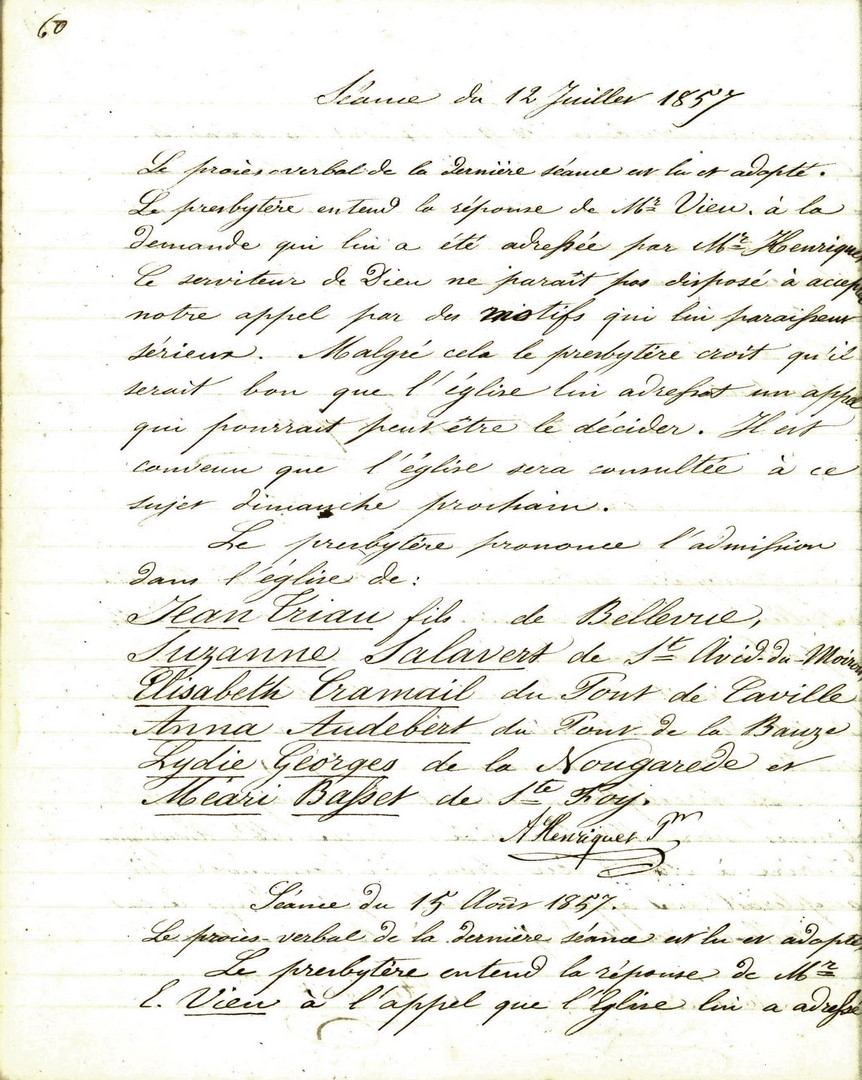 60
Séance du 12 Juillet 1857
Le procès-verbal de la dernière séance est lu et adopté.
Le presbytère entend la réponse de Mr Vieu. à la
demande qui lui a été adressée par Mr Henriquet
Ce serviteur de Dieu ne paraît pas disposé à accep
notre appel par des motifs qui lui paraissent
sérieux. Malgré cela le presbytère croit qu'il
serait bon que l'église lui adressat un appel
qui pourrait peut être le décider. Il est
convenu que l'église sera consultée à ce
sujet dimanche prochain.
Le presbytère prononce l'admission
dans l'église de:
Jean Criau fils de Bellevue,
Suzanne Salavert de St Avid-du-Moiron
Elisabeth Cramail du Pont de Caville
Anna Audebert du Pont de la Bauze
Lydie Georges de la Nougarede et
Méari Basset de Ste Foy.
A Henriquet Pr
Séance du 15 Août 1857.
Le procès-verbal de la dernière séance est lu et adopté
Le presbytère entend la réponse de Mr
E. Vieu à l'appel que l'Eglise lui a adressé